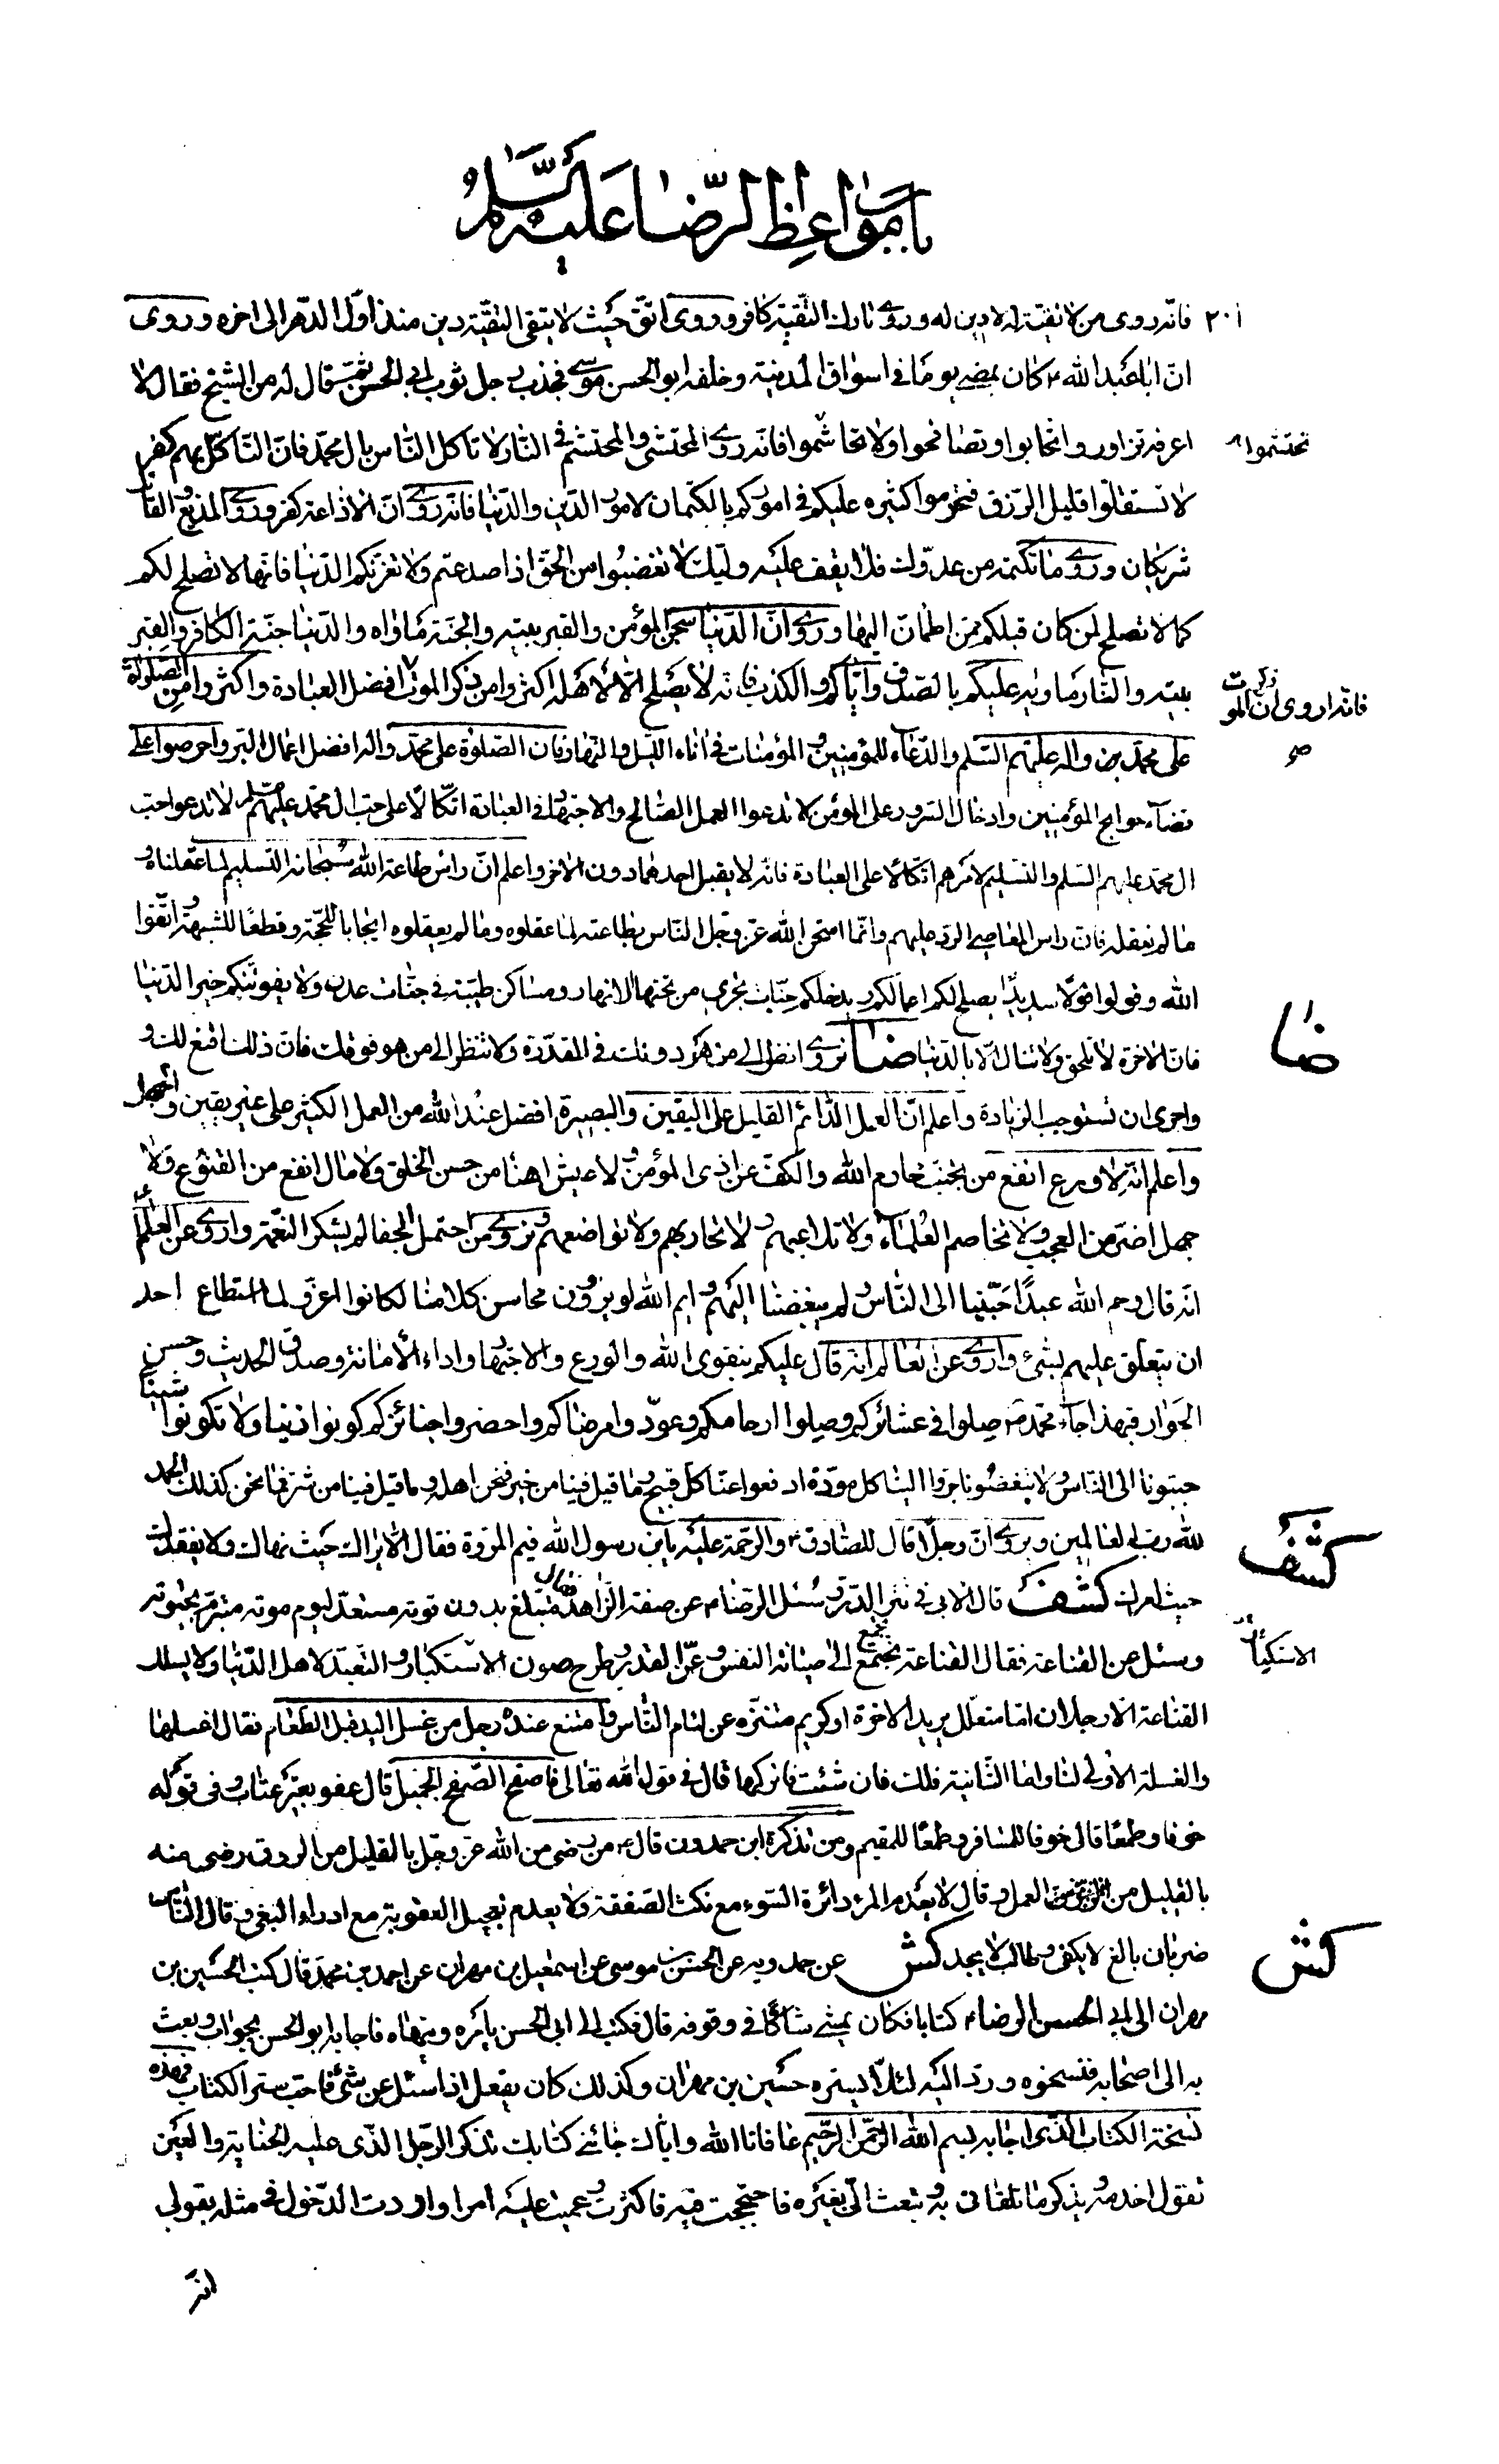 باب مواعظ الرّضا عليه السّلم
٢٠١
فانّه روى من لا تقيّة له لا دين له وروى تارك التّقيّة كافر وروى اتّق حيث لا يتّقى التّقيّة دين منذ اوّل الدّهر الى اخره وروى
انّ ابا عبد الله ع كان يمضى يوما فى اسواق المدينة وخلفه ابو الحسن موسى فجذب رجل ثوب ابى الحسن ثمّ قال له من الشّيخ فقال لا
اعرف تزاوروا تحابوا وتصافحوا ولا تحاشموا فانّه روى المحتشم والمحتشم فى النّار لا تاكل النّاس بال محمّد فانّ التّاكّل بهم كفر
تحتشموا
لا تستقلّوا قليل الرّزق فتحرموا كثيره عليكم فى اموركم بالكتمان لامور الدّين والدّنيا فانّه روى انّ الاذاعة كفر وروى المذيع والقاتل
شريكان وروى ما تكتمه من عدوّك فلا يقف عليه وليّك لا تغضبوا من الحقّ اذا صدعتم ولا تغرّنّكم الدّنيا فانّها لا تصلح لكم
كما لا تصلح لمن كان قبلكم ممّن اطمانّ اليها وروى انّ الدّنيا سجن المؤمن والقبر بيته والجنّة مأواه والدّنيا جنّة الكافر والقبر
بيته والنّار مأويه عليكم بالصّدق وايّاكم والكذب فانّه لا يصلح الّا لاهله اكثروا من ذكر الموت افضل العبادة واكثروا من الصّلوة
فانّه اروى انّ ذكر الموت
صح
على محمّد ص واله عليهم السّلم والدّعاء للمؤمنين والمؤمنات فى اناء اللّيل والنّهار فانّ الصّلوة على محمّد واله افضل اعمال البرّ واحرصوا على
قضآء حوايج المؤمنين وادخال السّرور على المؤمن لا تدعوا العمل الصّالح والاجتهاد فى العبادة اتّكالا على حبّ ال محمّد عليهم السّلم لا تدعوا حبّ
ال محمّد عليهم السّلم والتّسليم لامرهم اتّكالا على العبادة فانّه لا يقبل احدهما دون الاخر واعلم انّ راس طاعة الله سبحانه التّسليم لما عقلناه و
ما لم نعقله فانّ راس المعاصى الردّ عليهم وانّما امتحن الله عزّ وجلّ النّاس بطاعته لما عقلوه وما لم يعقلوه ايجابا للحجّة وقطعًا للشّبهة اتّقوا
الله وقولوا قولا سديدًا يصلح لكم اعمالكم ويدخلكم جنّات تجرى من تحتها الانهار ومساكن طيّبة فى جنّات عدن ولا يفوتنّكم خير الدّنيا
فانّ الاخرة لا تلحق ولا تنال الّا بالدّنيا ضا نروى انظر الى من هو دونك فى المقدرة ولا تنظر الى من هو فوقك فانّ ذلك اقنع لك و
ضا
واحرى ان تستوجب الزّيادة واعلم انّ العمل الدّائم القليل على اليقين والبصيرة افضل عند الله من العمل الكثير على غير يقين والجهل
واعلم انّه لا ورع انفع من تجنّب محارم الله والكفّ عن اذى المؤمن ولا عيش اهنا من حسن الخلق ولا مال انفع من القنوع ولا
جهل اضرّ من العجب ولا تخاصم العلماء ولا تلاعبهم ولا تحاربهم ولا تواضعهم ونروى من احتمل الجفا لم يشكر النّعمة واروى عن العالم ع
انّه قال رحم الله عبدًا حبّبنا الى النّاس ولم يبغضنا اليهم وايم الله لو يروون محاسن كلامنا لكانوا اعزّ ولما استطاع احد
ان يتعلّق عليهم بشئ واروى عن العالم انّه قال عليكم بتقوى الله والورع والاجتهاد واداء الأمانة وصدق الحديث وحسن
الجوار فبهذا جآء محمّد ص صلوا فى عشائركم وصلوا ارحامكم وعودوا مرضاكم واحضروا جنائزكم كونوا زينا ولا تكونوا شينا
حبّبونا الى النّاس ولا تبغضونا جرّوا الينا كلّ مودّة ادفعوا عنّا كلّ قبيح وما قيل فينا من خير فنحن اهله وما قيل فينا من شرّ فما نحن كذلك الحمد
لله ربّ العالمين ويروى انّ رجلًا قال للصّادق ع والرّحمة عليه يابن رسول الله فيم المروّة فقال الّا يراك حيث نهاك ولا يفقدك
حيث امرك كشف قال الابى فى نثر الدّرّ وسئل الرّضا ع عن صفة الزّاهد فقال متبلّغ بدون قوته مستعدّ ليوم موته متبرّم بحيوته
كشف
وسئل عن القناعة فقال القناعة تجتمع الى صيانة النفس وعزّ القدر وطرح مون الاستكبار والتّعبّد لاهل الدّنيا ولا يسلك
تجمع
الاستكثار
القناعة الّا رجلان امّا متعلّل يريد الاخرة او كريم متنزّه عن لئام النّاس وامتنع عنده رجل من غسل اليد قبل الطّعام فقال اغسلها
والغسلة الأولى لنا وامّا الثّانية فلك فان شئت فاتركها قال فى قول الله تعالى فاصفح الصّفح الجميل قال عفو بغير عتاب وفى قوله
خوفا وطمعًا قال خوفا للمسافر وطمعًا للمقيم ومن تذكرة ابن حمدون قال ع من رضى من الله عزّ وجلّ بالقليل من الرزق رضى منه
بالقليل من العمل وقال لا يعدم المرء دائرة السّوء مع نكث الصّفقة ولا يعدم تعجيل العقوبة مع ادراء البغى وقال النّاس
ضربان بالغ لا يكتفى وطالب لا يجد كش عن حمدويه عن الحسن بن موسى عن اسمعيل بن مهران عن احمد بن محمّد قال كتب الحسين بن
كش
مهران الى ابى الحسن الرضا ع كتابا فكان يمشى شاكّا فى وقوفه قال فكتب الى ابى الحسن يامره وينهاه فاجابه ابو الحسن بجواب وبعث
به الى اصحابه فنسخوه وردّ اليه لئلّا يستره حسين بن مهران وكذلك كان يفعل اذا سئل عن شئ فاحبّ ستر الكتاب فهذه
نسخة الكتاب الّذى اجابه بسم الله الرّحمن الرّحيم عافانا الله وايّاك جائنى كتابك تذكر الرّجل الّذى عليه الخيانة والعين
تقول اخذته وتذكر ما تلقانى به وتبعث الىّ بغيره فاحتججت فيه فاكثرت وعميت عليه امرا واردت الدّخول فى مثله بقول
انّه